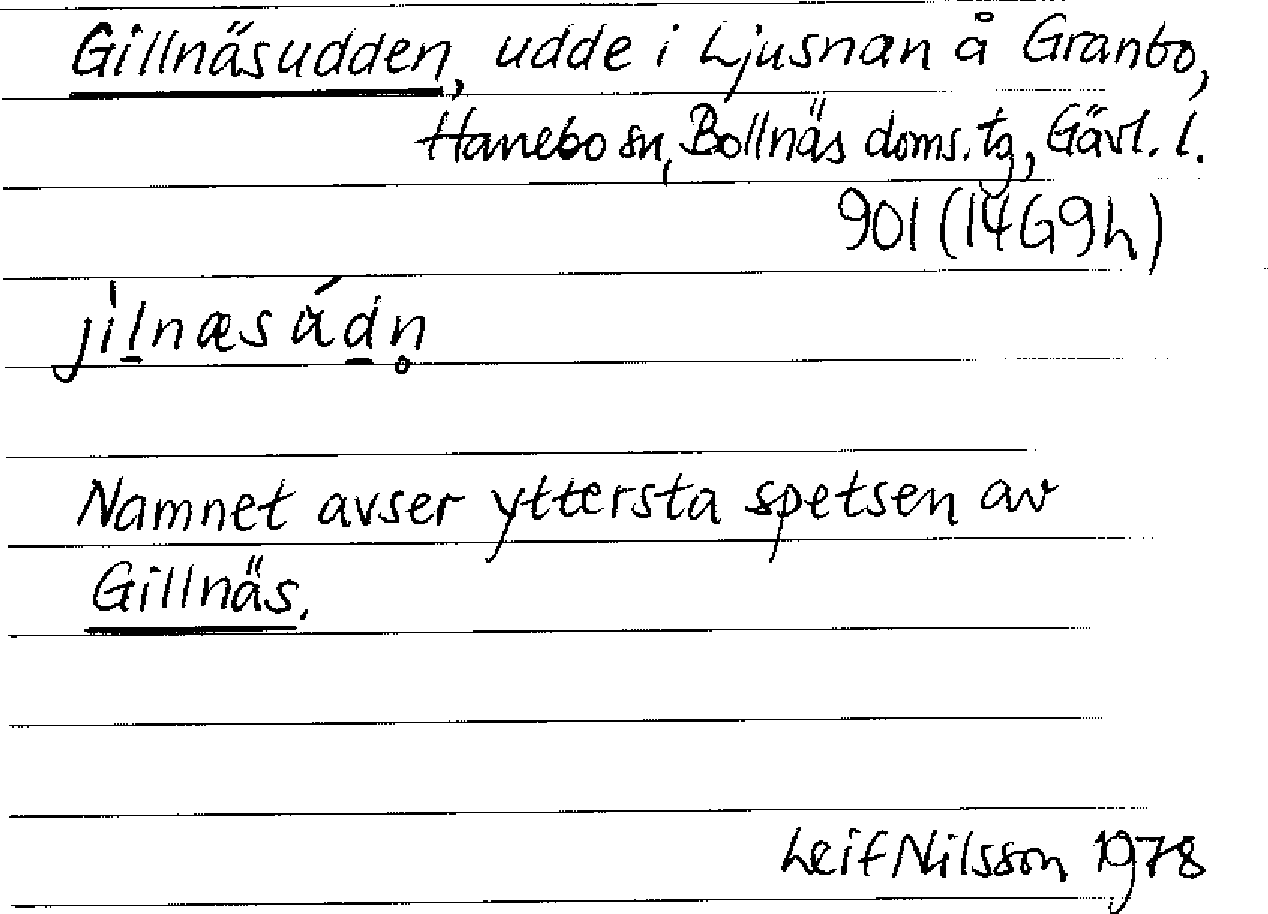 Gillnäsudden, udde i Ljusnan å Granbo,
Hanebo sn, Bollnäs doms. tg, Gävl. l.
901 (14G9h)
ji̍l̲næsúd̲n̥
Namnet avser yttersta spetsen av
Gillnäs.
Leif Nilsson 1978